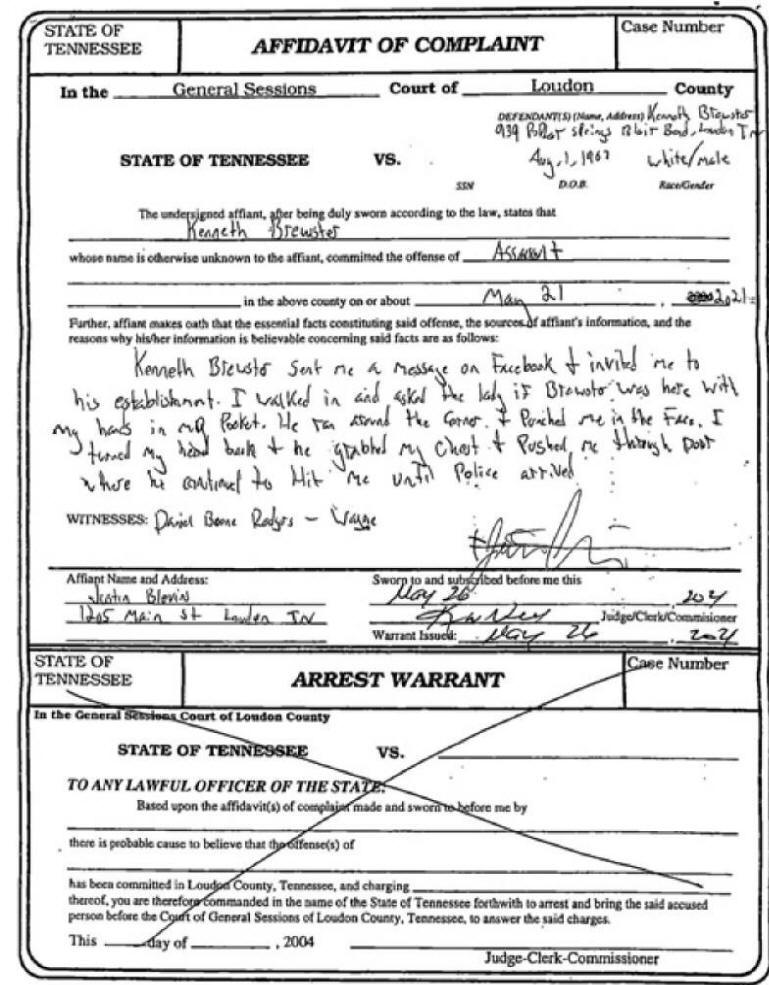 STATE OF TENNESSEE
AFFIDAVIT OF COMPLAINT
Case Number
In the General Sessions Court of Loudon County
DEFENDANT(S) (Name, Address) Kenneth Brewster
939 Springs Bend, Loudon TN
STATE OF TENNESSEE VS. Aug, 1, 1967 white/male
SSN D.O.B. Race/Gender
The undersigned affiant, after being duly sworn according to the law, states that
Kenneth Brewster
whose name is otherwise unknown to the affiant, committed the offense of Assault
in the above county on or about May 21, 2021.
Further, affiant makes oath that the essential facts constituting said offense, the sources of affiant's information, and the
reasons why his/her information is believable concerning said facts are as follows:
Kenneth Brewster Sent me a message on Facebook & invited me to
his establishment. I walked in and asked the lady if Brewster was here with
my hands in my Pocket. He ran around the corner, & Punched me in the Face. I
turned my head back & he grabbed my Chest & Pushed me through Door
where he continued to Hit me until Police arrived
WITNESSES: Daniel Boone Rodgers - Wayne
Affiant Name and Address:
Sworn to and subscribed before me this
Blevins
May 26, 2021
1205 Main St Loudon TN
Judge/Clerk/Commisioner
Warrant Issued: May 26, 2021
STATE OF TENNESSEE
ARREST WARRANT
Case Number
In the General Sessions Court of Loudon County
STATE OF TENNESSEE VS.
TO ANY LAWFUL OFFICER OF THE STATE:
Based upon the affidavit(s) of complaint made and sworn to before me by
there is probable cause to believe that the offense(s) of
has been committed in Loudon County, Tennessee, and charging
thereof, you are therefore commanded in the name of the State of Tennessee forthwith to arrest and bring the said accused
person before the Court of General Sessions of Loudon County, Tennessee, to answer the said charges.
This day of , 2004
Judge-Clerk-Commissioner